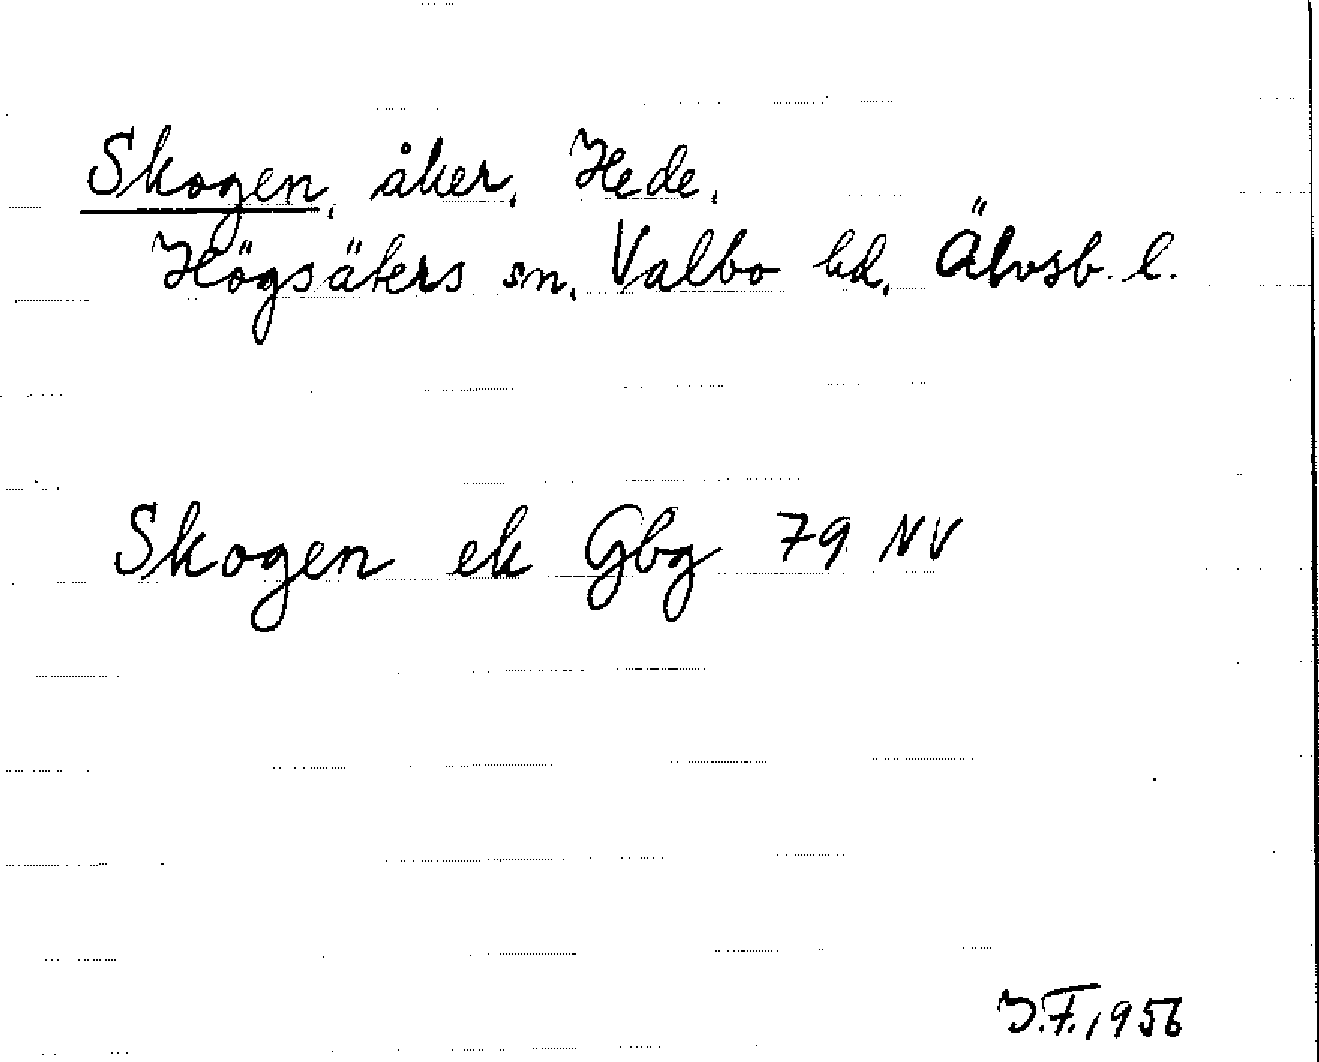 Skogen, åker, Hede,
Högsäters sn, Valbo hd, Älvsb. l.
Skogen ek Gbg 79 NV
J.F. 1956